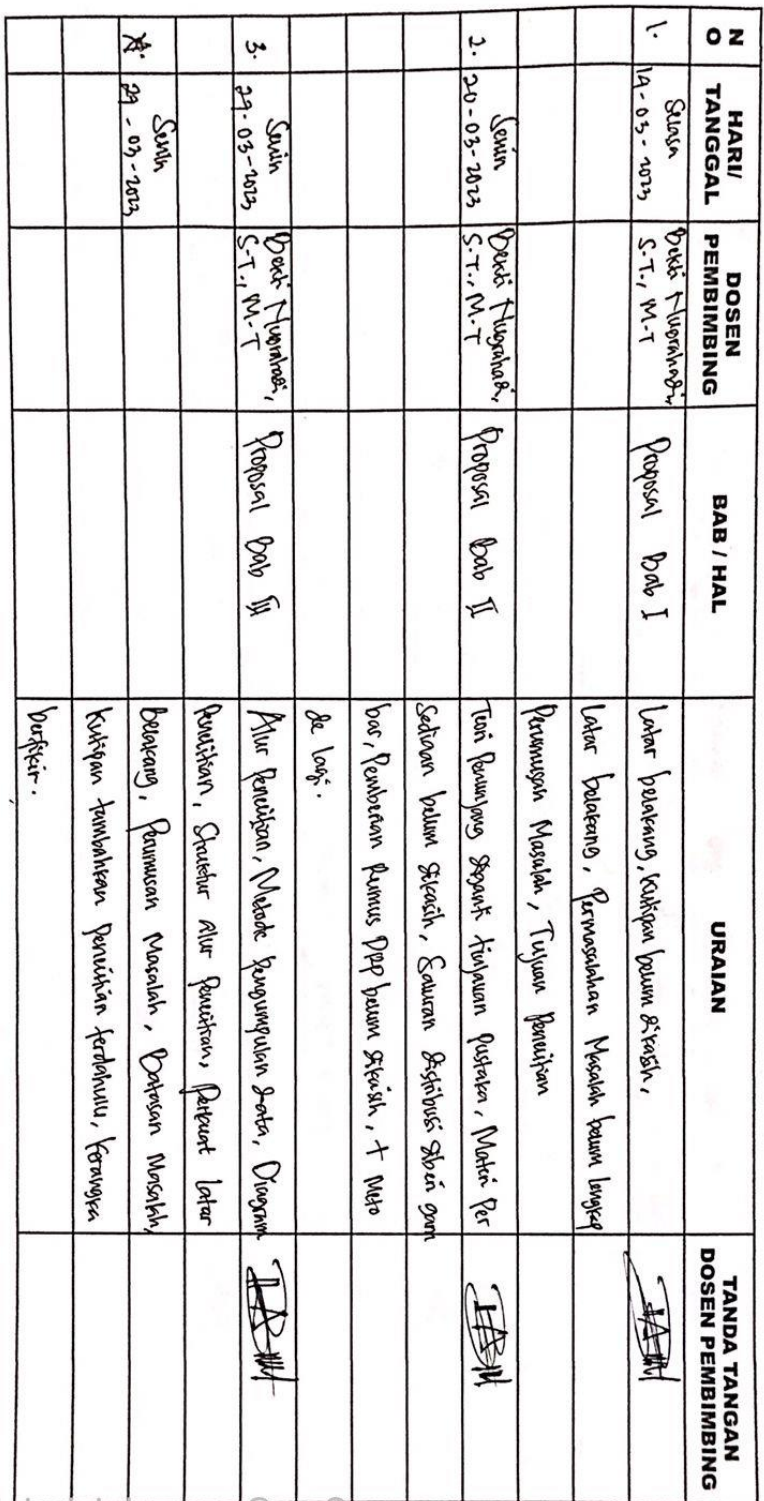 NO
HARI/
TANGGAL
DOSEN
PEMBIMBING
BAB / HAL
URAIAN
TANDA TANGAN
DOSEN PEMBIMBING
1.
Selasa
14-03-2023
Bekti Nugrahadi,
S.T., M.T
Proposal Bab I
Latar belakang, kutipan belum dikasih,
Latar belakang, Permasalahan Masalah belum lengkap
Perumusan Masalah, Tujuan Penelitian
2.
Senin
20-03-2023
Bekti Nugrahadi,
S.T., M.T
Proposal Bab II
Teori Penunjang diganti tinjauan Pustaka, Materi Per
Sediaan belum dikasih, Saluran distribusi diberi gam
bar, Pemberian Rumus DRP belum dikasih, + Meto
de lagi.
3.
Senin
29-03-2023
Bekti Nugrahadi,
S.T., M.T
Proposal Bab III
Alur Penelitian, Metode Pengumpulan data, Diagram
Penelitian, Struktur Alur Penelitian, Perkuat latar
Senin
29-03-2023
Belakang, Perumusan Masalah, Batasan Masalah,
Kutipan tambahkan Penelitian terdahulu, Kerangka
berfikir.